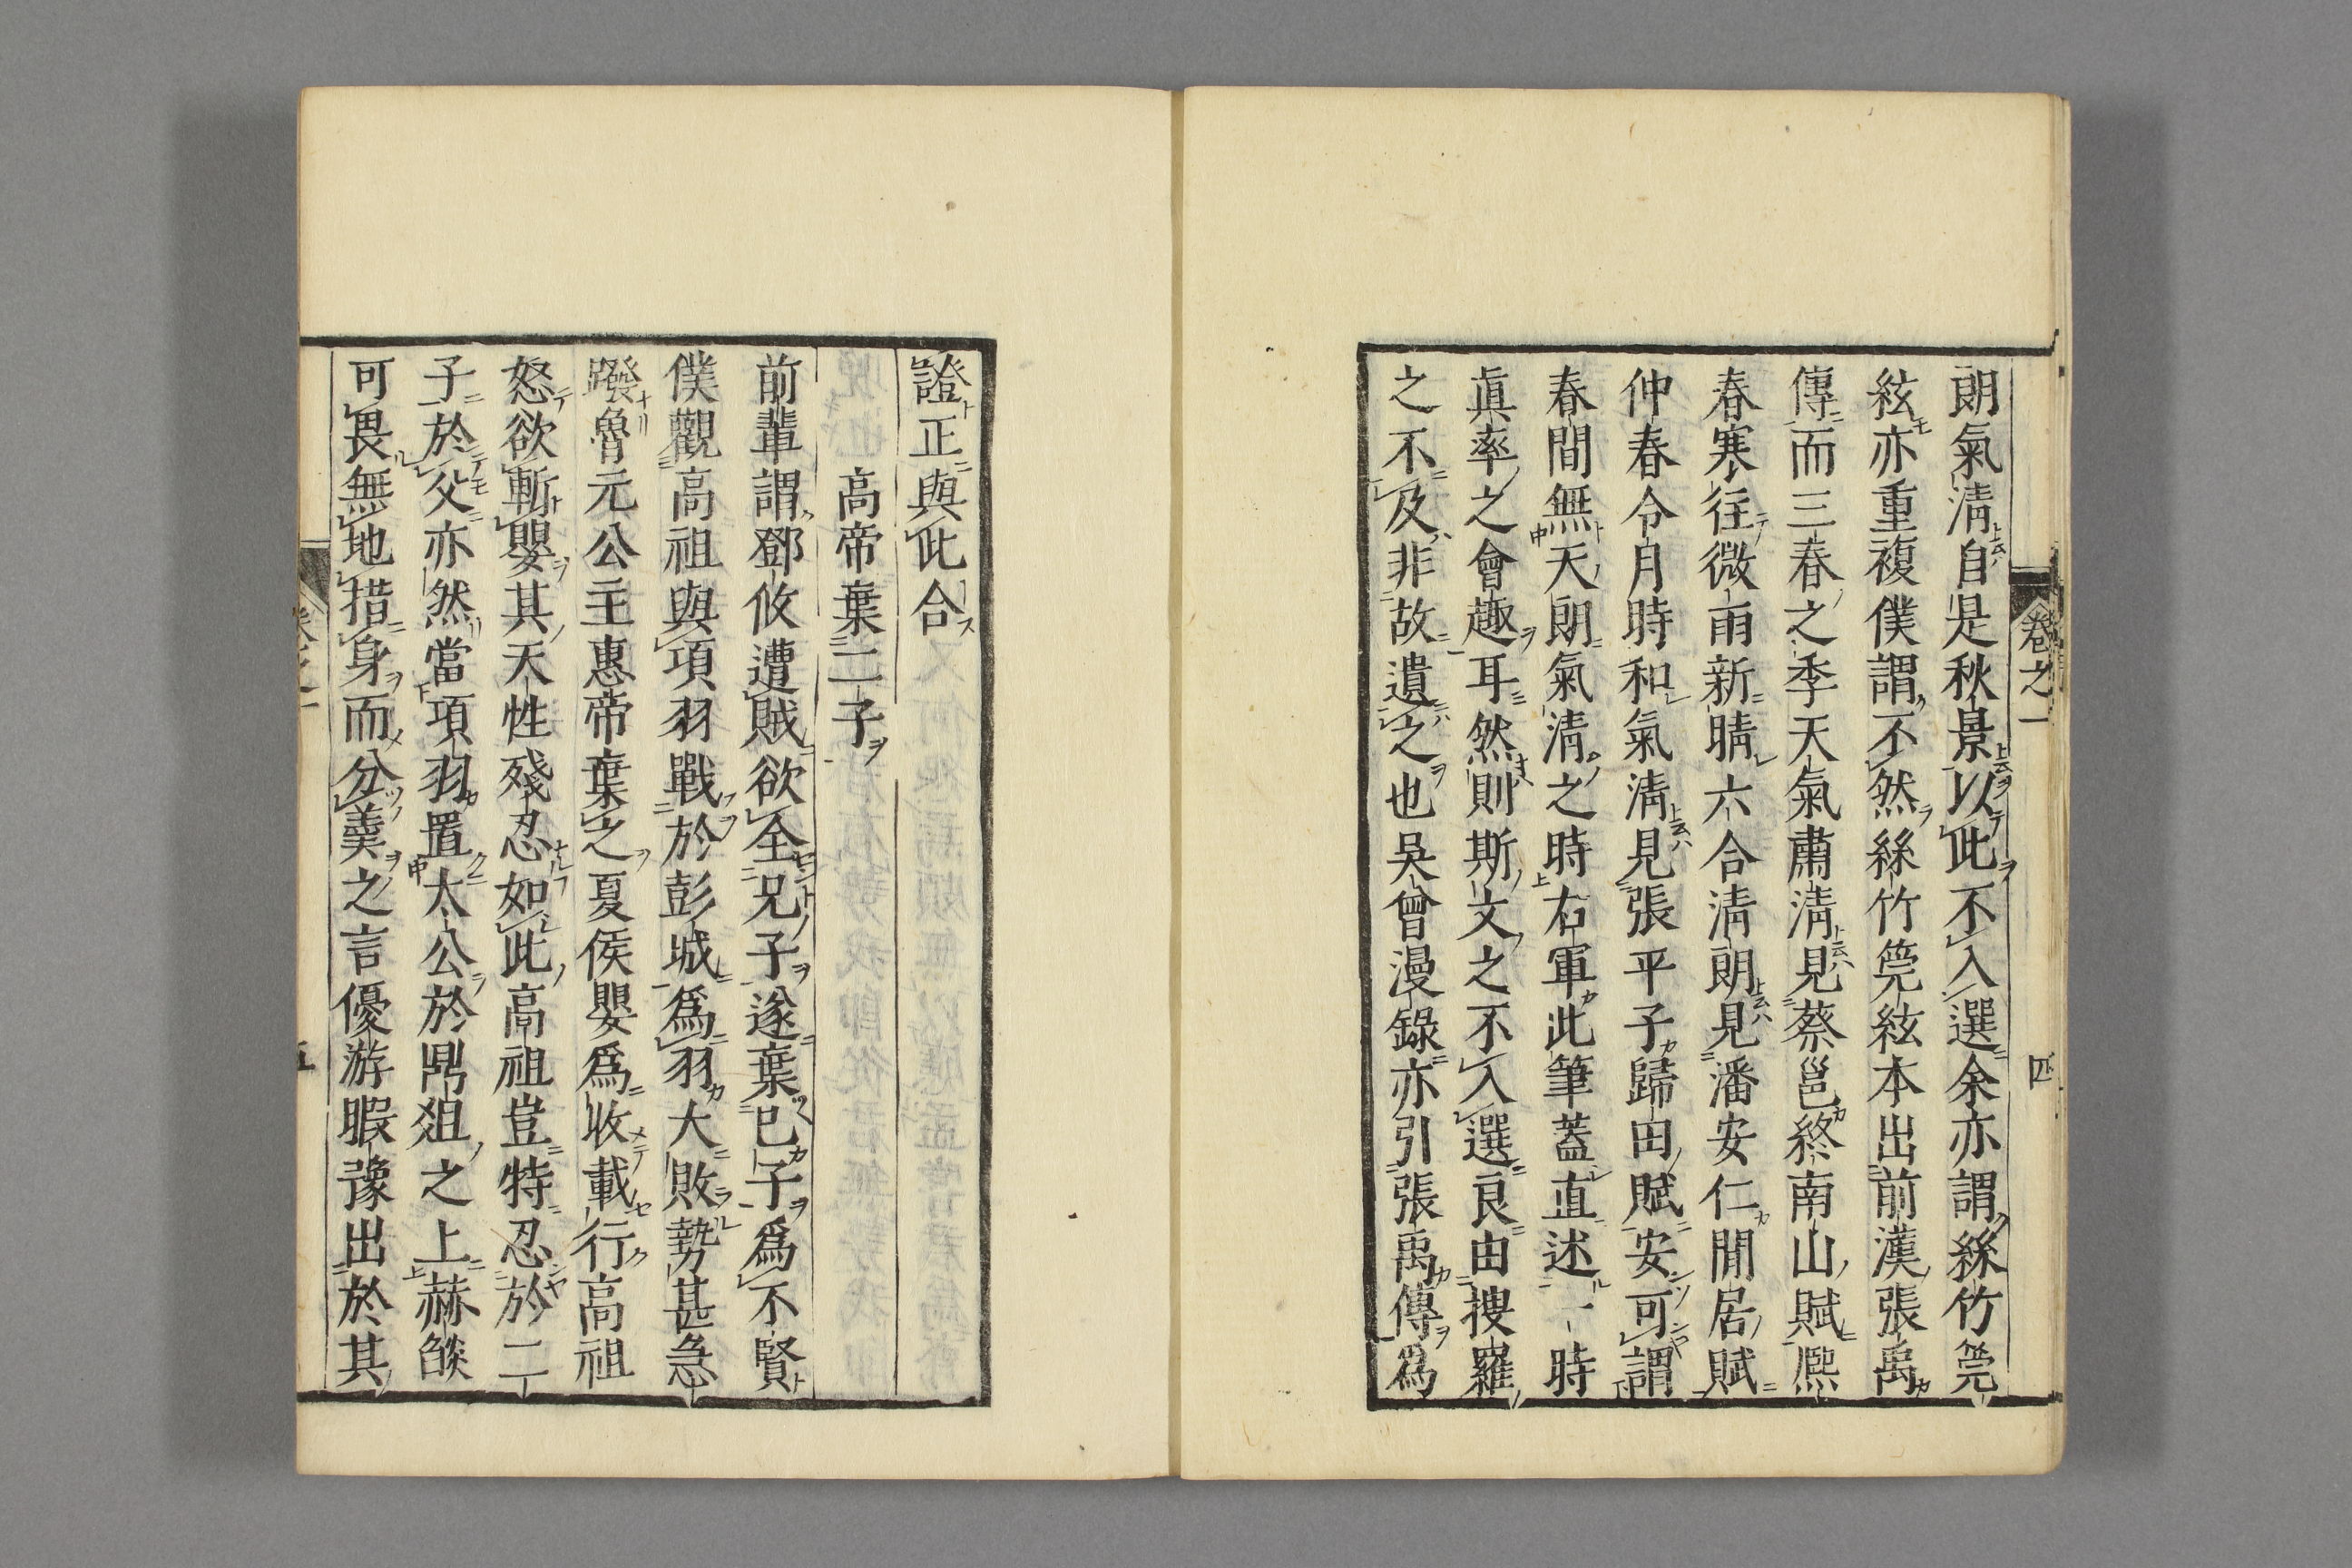 卷之一
四
朗氣淸自是秋景以此不入選余亦謂絲竹筦
絃亦重複僕謂不然絲竹筦絃本出前漢張禹
傳而三春之季天氣肅淸見蔡邕終南山賦熈
春寒往微雨新晴六合淸朗見潘安仁閒居賦
仲春令月時和氣淸見張平子歸田賦安可謂
春間無天朗氣淸之時右軍此筆蓋直述一時
眞率之會趣耳然則斯文之不入選良由搜羅
之不及非故遺之也吳曾漫錄亦引張禹傳爲
證正與此合
高帝棄二子
前輩謂鄧攸遭賊欲全兄子遂棄已子爲不賢
僕觀高祖與項羽戰於彭城爲羽大敗勢甚急
蹳魯元公主惠帝棄之夏侯嬰爲收載行高祖
怒欲斬嬰其天性殘忍如此高祖豈特忍於二
子於父亦然當項羽置太公於鼎俎之上赫燄
可畏無地措身而分羹之言優游暇豫出於其
五